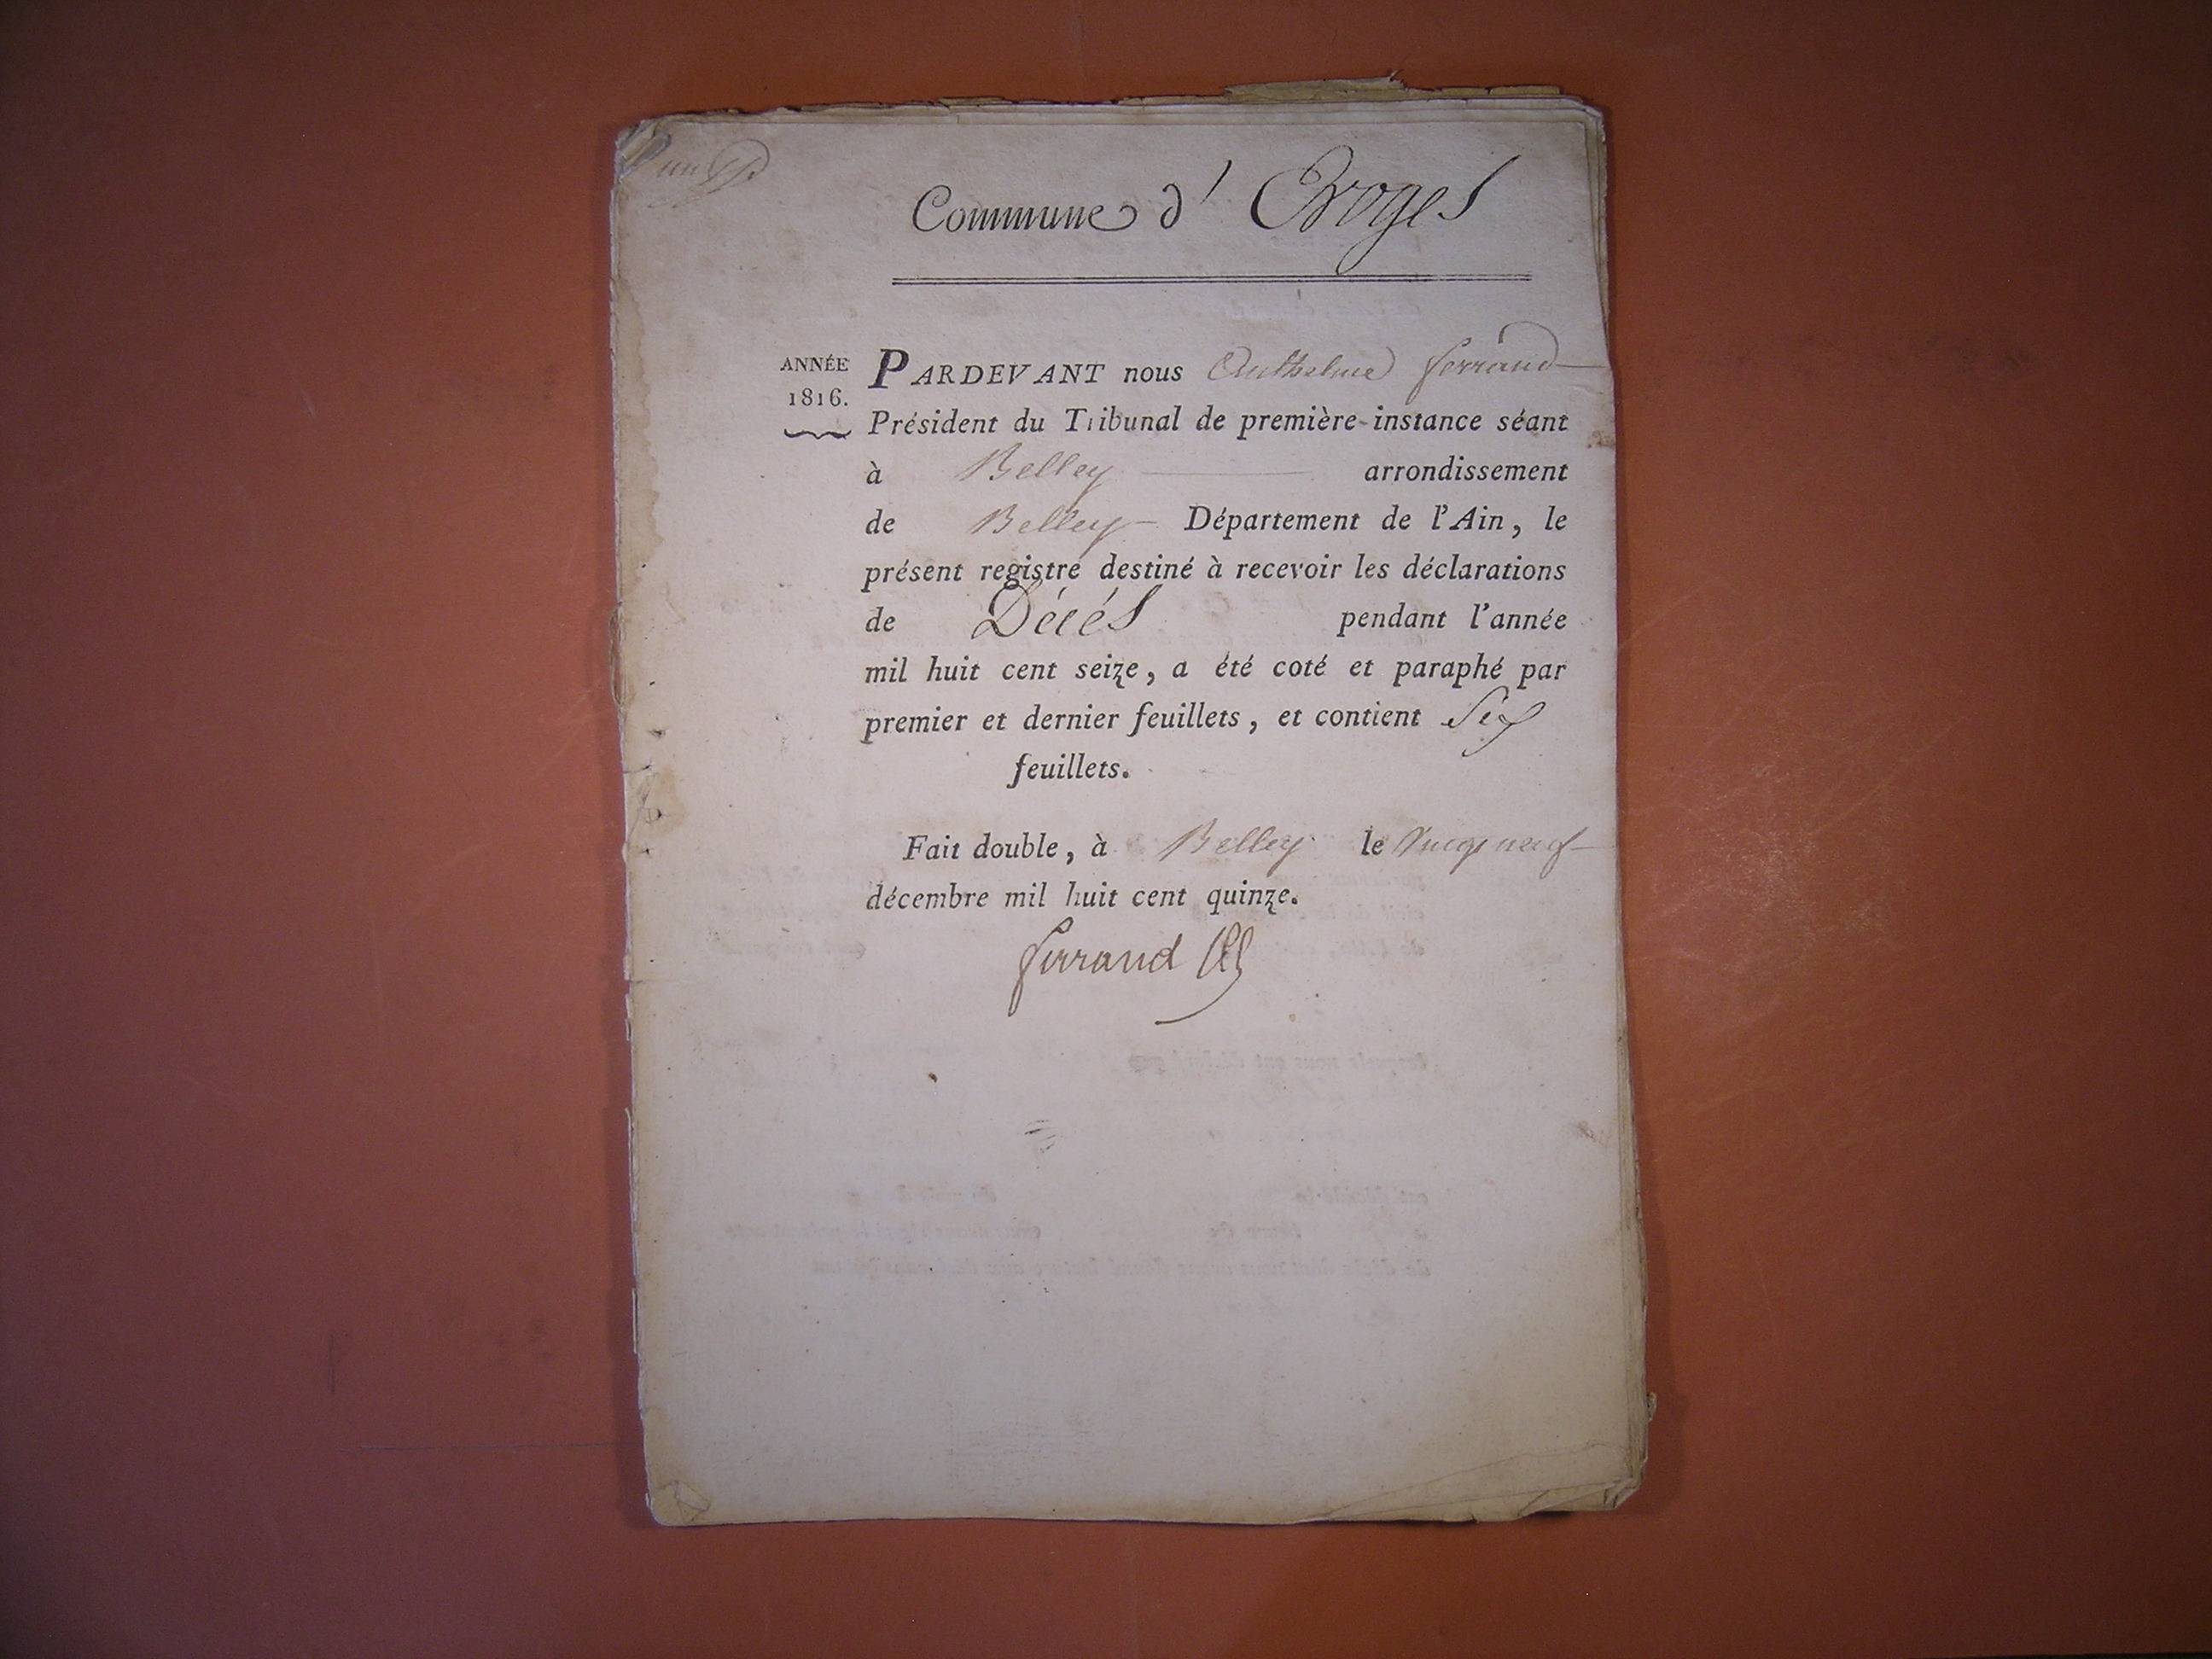 Commune d' Oroges
ANNÉE
1816.
PARDEVANT nous Anthelme ferrand
Président du Tribunal de première instance séant
à Belley arrondissement
de Belley Département de l'Ain, le
présent registre destiné à recevoir les déclarations
de Décés pendant l'année
mil huit cent seize, a été coté et paraphé par
premier et dernier feuillets, et contient Six
feuillets.
Fait double, à Belley le vingt neuf
décembre mil huit cent quinze.
ferrand